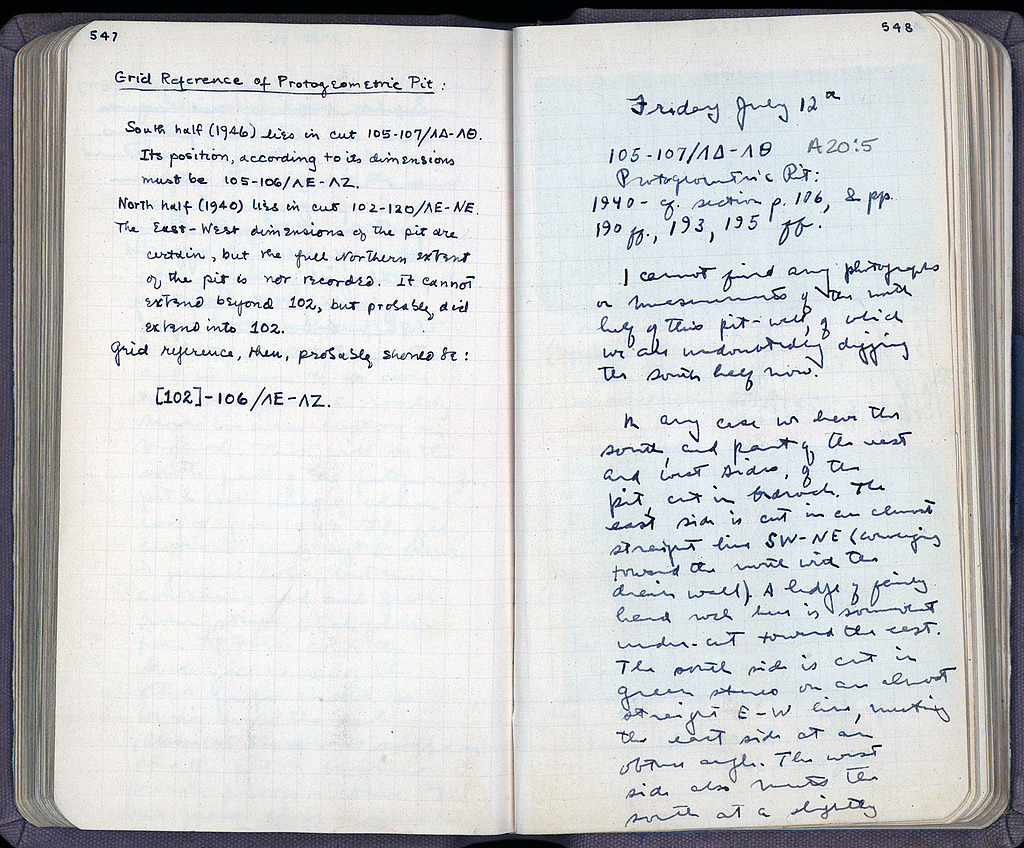 547
Grid Reference of Protogeometric Pit:
South half (1946) lies in cut 105-107/ΛΔ-ΛΘ.
Its position, according to its dimensions
must be 105-106/ΛΕ-ΛΖ.
North half (1940) lies in cut 102-120/ΛΕ-ΝΕ.
The East-West dimensions of the pit are
certain, but the full Northern extent
of the pit is not recorded. It cannot
extend beyond 102, but probably did
extend into 102.
Grid reference, then, probably should be:
[102]-106/ΛΕ-ΛΖ.
548
Friday July 12th
105-107/ΛΔ-ΛΘ A20:5
Protogeometric Pit:
1940- cf. section p. 106, & pp.
190 ff., 193, 195 ff.
I cannot find any photographs
or measurements of the north
half of this pit-well, of which
we are undoubtedly digging
the south half now.
In any case we have the
south, and part of the east
and west sides, of the
pit, cut in bedrock. The
east side is cut in an almost
straight line SW-NE (converging
toward the north with the
drain wall). A ledge of fairly
hard rock here is somewhat
under-cut toward the east.
The south side is cut in
green stereo on an almost
straight E-W line, meeting
the east side at an
obtuse angle. The west
side also meets the
south at a slightly